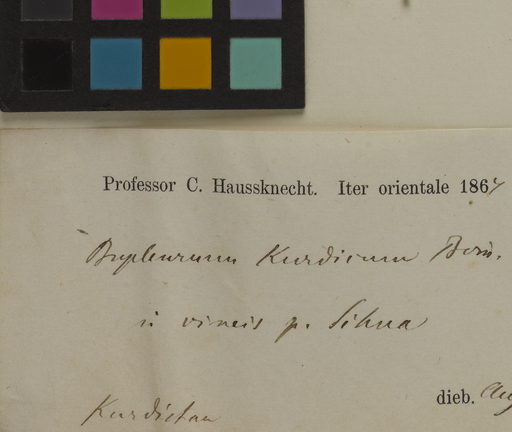 Professor C. Haussknecht. Iter orientale 1867
Bupleurum Kurdicum Boiss.
in vineis p. Sihna
dieb. Aug
Kurdistan